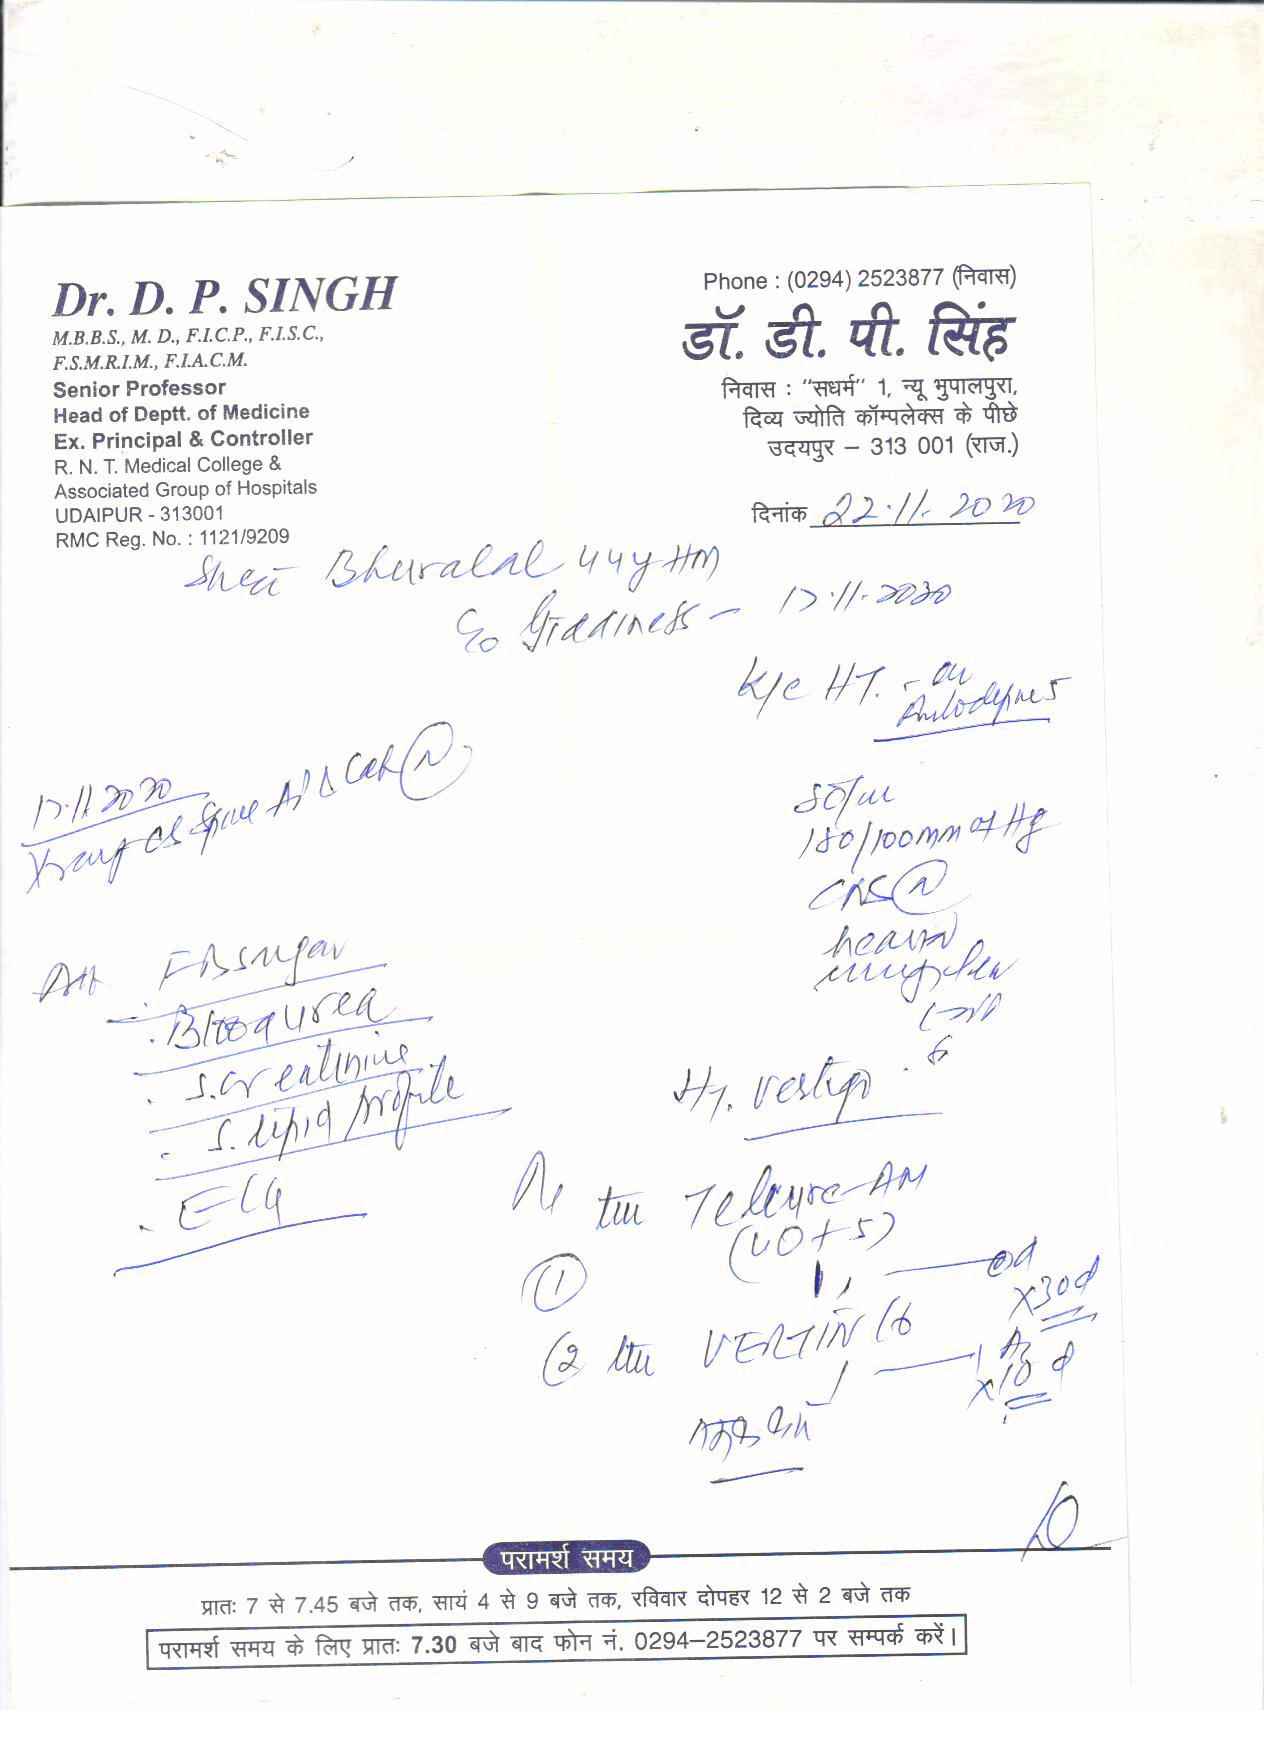 Dr. D. P. SINGH
M.B.B.S., M. D., F.I.C.P., F.I.S.C.,
F.S.M.R.I.M., F.I.A.C.M.
Senior Professor
Head of Deptt. of Medicine
Ex. Principal & Controller
R. N. T. Medical College &
Associated Group of Hospitals
UDAIPUR - 313001
RMC Reg. No. : 1121/9209
Phone : (0294) 2523877 (निवास)
डॉ. डी. पी. सिंह
निवास : "सधर्म" 1, न्यू भुपालपुरा,
दिव्य ज्योति कॉम्पलेक्स के पीछे
उदयपुर – 313 001 (राज.)
दिनांक 22.11.2020
Bhuralal 44y HM
c/o Giddiness – 17.11.2020
K/c HT. - on
17.11.2020
Xray CS Spine AP & Lat (N)
80/m
180/100 mm of Hg
CNS (N)
FBsugar
Blood urea
S. creatinine
S. lipid profile
ECG
HT. Vertigo
(40+5)
① 1 — od
x 30 d
② VERTIN 16
1
x 10 d
परामर्श समय
प्रातः 7 से 7.45 बजे तक, सायं 4 से 9 बजे तक, रविवार दोपहर 12 से 2 बजे तक
परामर्श समय के लिए प्रातः 7.30 बजे बाद फोन नं. 0294–2523877 पर सम्पर्क करें।